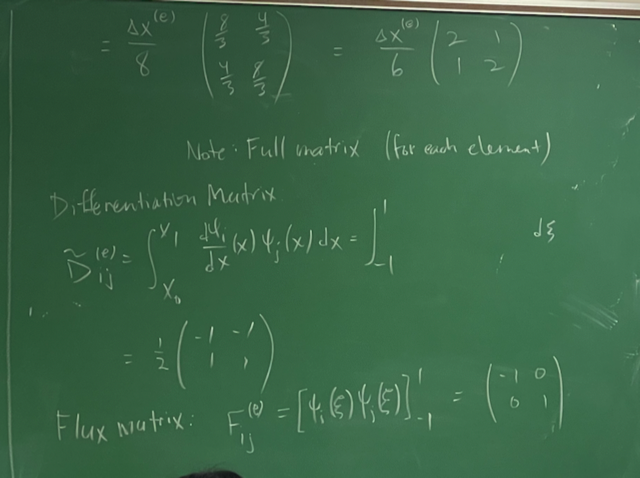 = Δx^(e)/8 (8/3 4/3; 4/3 8/3) = Δx^(e)/6 (2 1; 1 2)
Note: Full matrix (for each element)
Differentiation Matrix
D̃_ij^(e) = ∫_{x_0}^{x_1} dψ_i/dx (x) ψ_j (x) dx = ∫_{-1}^{1} dξ
= 1/2 (-1 -1; 1 1)
Flux matrix: F_ij^(e) = [ψ_i(ξ) ψ_j(ξ)]_{-1}^{1} = (-1 0; 0 1)